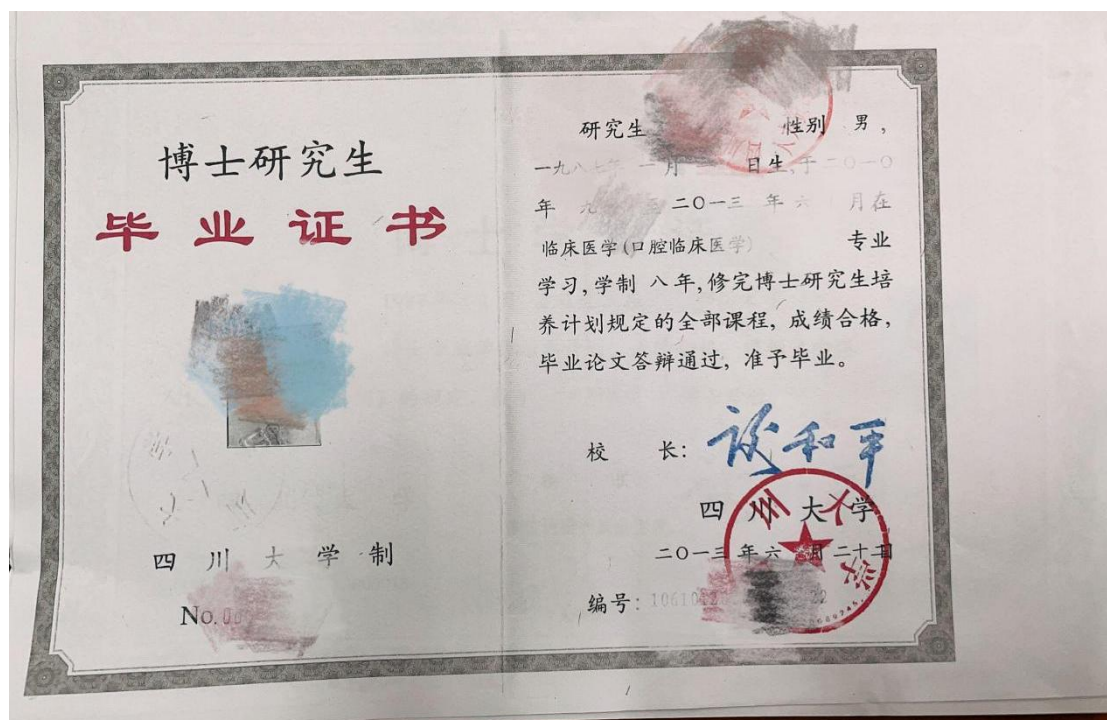 博士研究生
毕业证书
四川大学制
No.00
研究生 性别 男,
一九八七年 一月 日生,于二〇一〇
年 九 至 二〇一三 年 六 月在
临床医学(口腔临床医学) 专业
学习,学制 八年,修完博士研究生培
养计划规定的全部课程,成绩合格,
毕业论文答辩通过,准予毕业。
校 长: 谢和平
四川大学
二〇一三年六月二十日
编号:10610